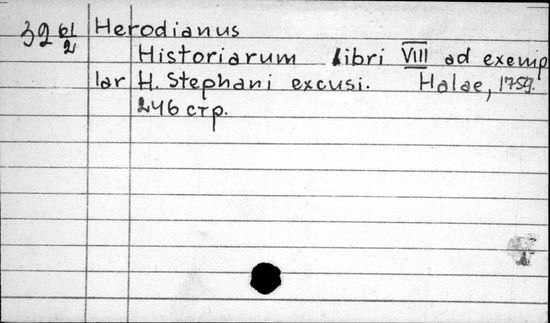 39 61/2 Herodianus
Historiarum libri VIII ad exemp
lar H. Stephani excusi. Halae, 1759.
246 стр.